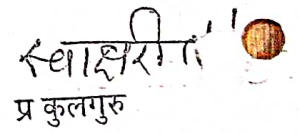 स्वाक्षरीत/
प्र कुलगुरु